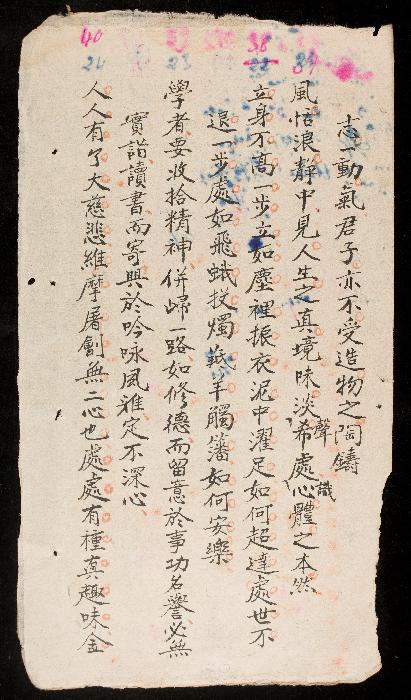 志一動氣君子亦不受造物之陶鑄
風恬浪靜中見人生之真境味淡聲希處識心體之本然
立身不高一步立如塵裡振衣泥中濯足如何超達處世不
退一步處如飛蛾投燭羝羊觸籓如何安樂
學者要收拾精神併歸一路如修德而留意於事功名譽必無
實詣讀書而寄興於吟咏風雅定不深心
人人有个大慈悲維摩屠劊無二心也處處有種真趣味金
40
38
37
24
23
22
21